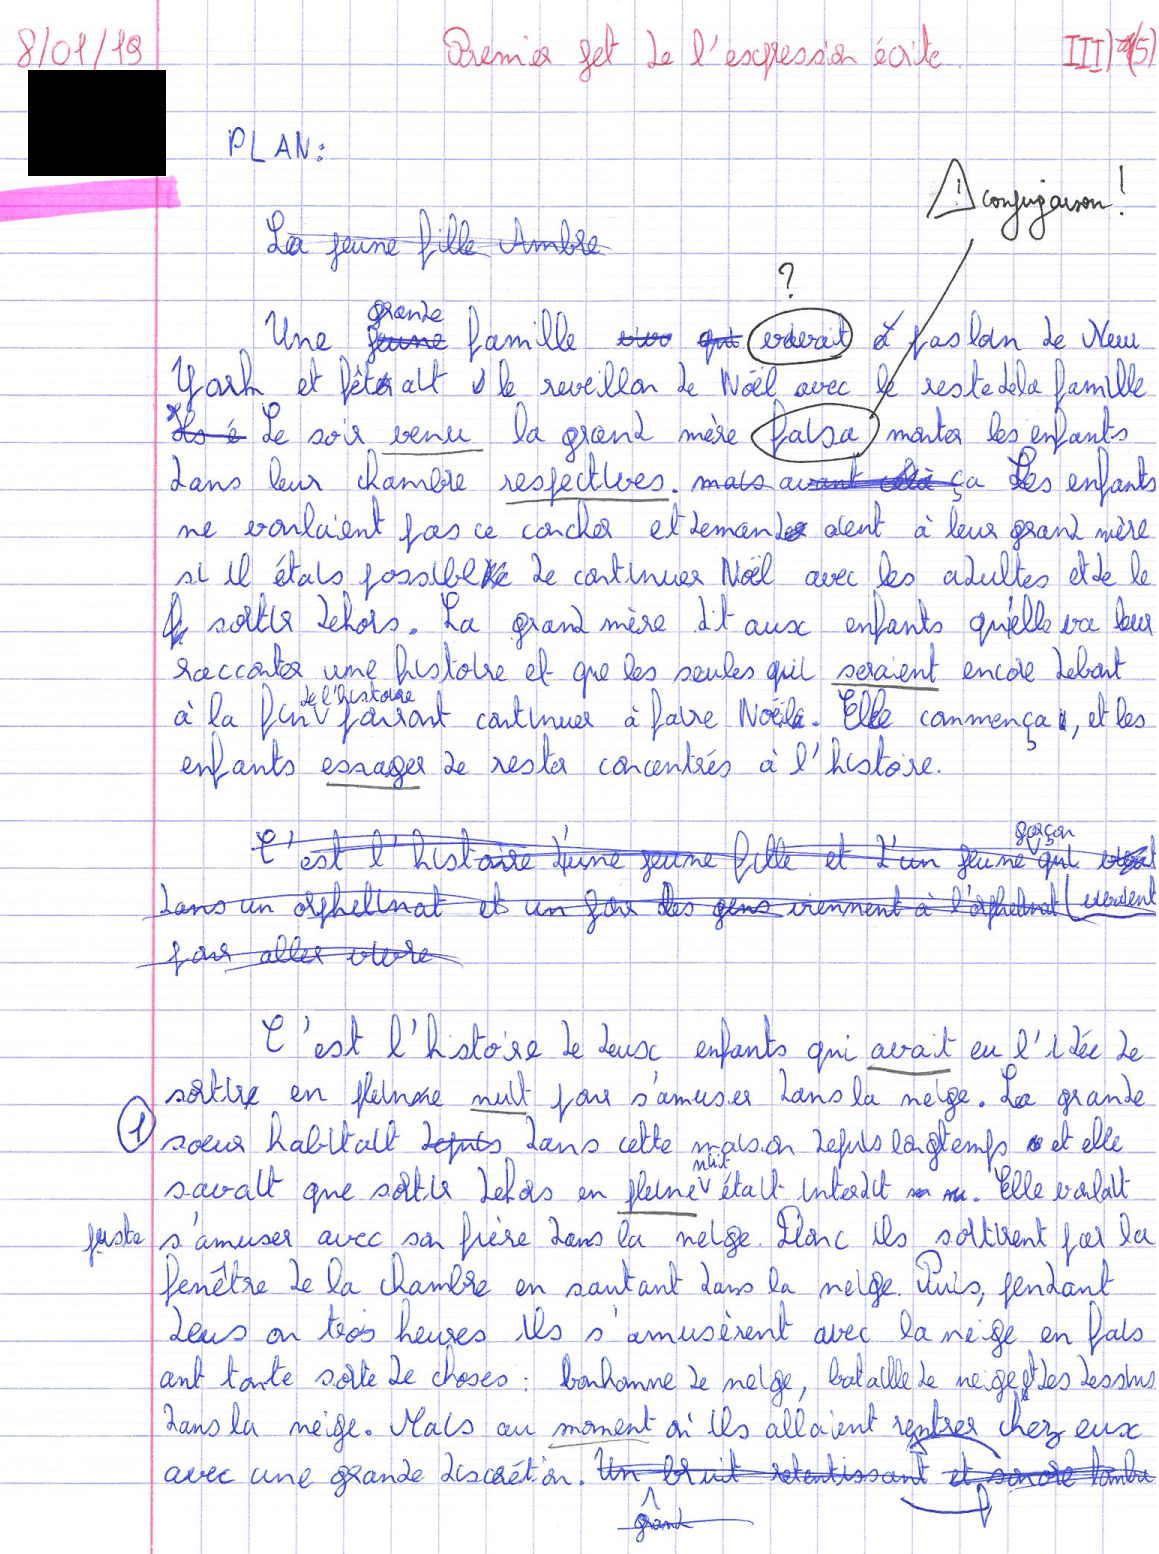 8/01/19 Premier jet de l'expression écrite III) (5)
PLAN:
⚠ conjugaison !
La jeune fille Ambre
?
grande
Une jeune famille vivo qui viverait à pas loin de New
York et fêterait le reveillon de Noël avec le reste de la famille
Ils é Le soir venu la grand mère faisa monter les enfants
dans leur chambre respectives. mais avant celà ça Les enfants
ne voulaient pas ce coucher et demandaient à leur grand mère
si il étais possible de continuer Noël avec les adultes et de le
sortir dehors. La grand mère dit aux enfants qu'elle va leur
racconter une histoire et que les seules qui seraient encore debout
de l'histoire
à la fin pouront continuer à faire Noël. Elle commença, et les
enfants essayer de rester concentrés à l'histoire.
garçon
C'est l'histoire d'une jeune fille et d'un jeune qui
dans un orphelinat et un jour des gens viennent à l'orphelinat
pour aller vivre
C'est l'histoire de deux enfants qui avait eu l'idée de
sortir en pleine nuit pour s'amuser dans la neige. La grande
1 soeur habitait depuis dans cette maison depuis longtemps et elle
nuit
savait que sortir dehors en pleine était interdit. Elle voulait
juste s'amuser avec son frère dans la neige. Donc ils sortirent par la
fenêtre de la chambre en sautant dans la neige. Puis, pendant
deus ou trois heures ils s'amusèrent avec la neige en fais
ant toute sorte de choses : bonhomme de neige, bataille de neige et des dessins
dans la neige. Mais au moment où ils allaient rentrer chez eux
avec une grande discrétion. Un bruit retentissant et sonore tomba
grand